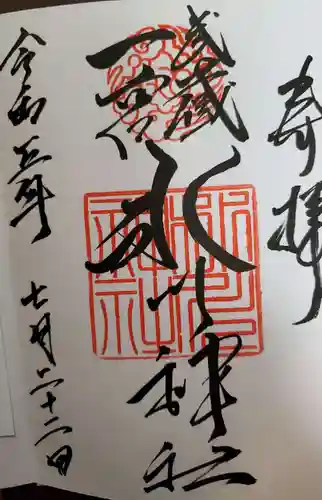 奉拝
武蔵
一宮
氷川神社
令和五年
七月二十二日